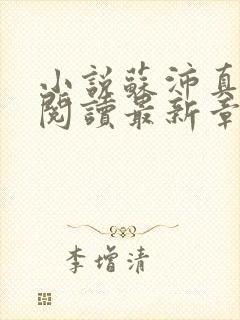 小說蘇沛真
閱讀最新章
李增清